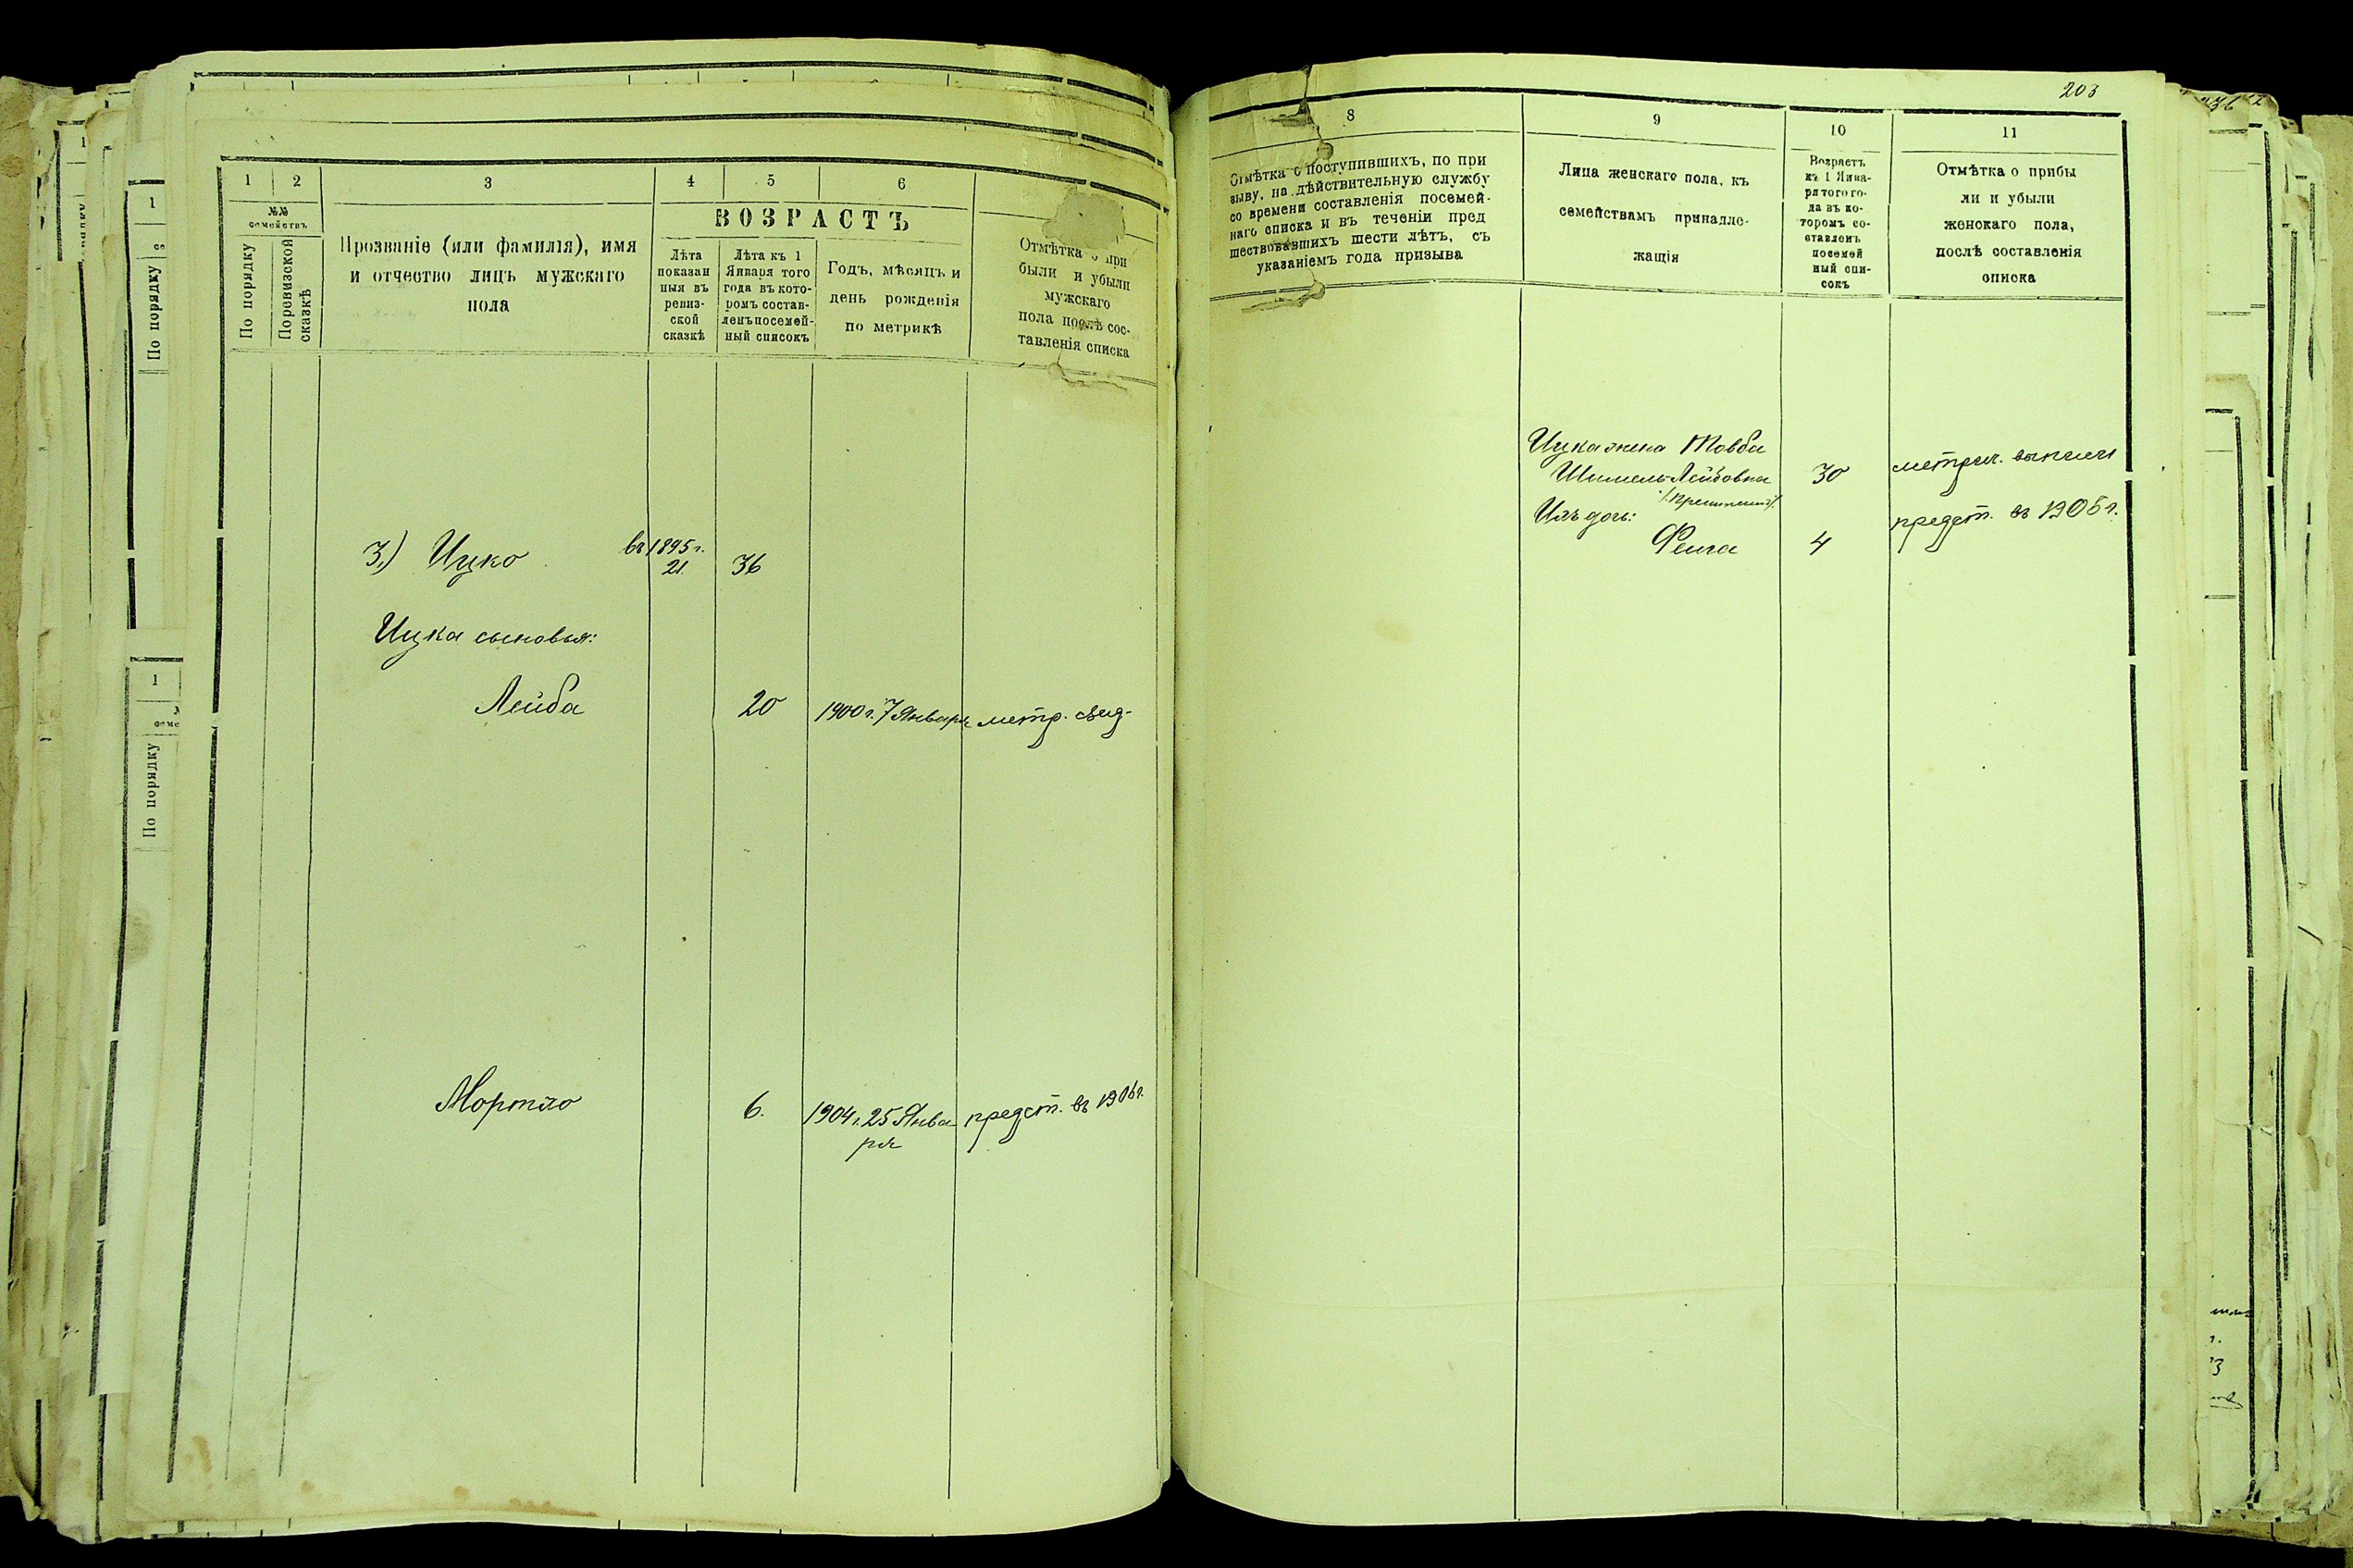 203
1 2 3 4 5 6
№№ семействъ
По порядку
По ревизской сказкѣ
Прозваніе (или фамилія), имя
и отчество лицъ мужскаго
пола
ВОЗРАСТЪ
Лѣта
показан
ныя въ
ревиз-
ской
сказкѣ
Лѣта къ 1
Января того
года въ кото-
ромъ состав-
ленъ посемей-
ный списокъ
Годъ, мѣсяцъ и
день рожденія
по метрикѣ
Отмѣтка о при
были и убыли
мужскаго
пола послѣ сос-
тавленія списка
3.) Ицко
въ 1895 г.
21.
36
Ицка сыновья:
Лейба 20 1900 г. 7 Января метр. свид.
Мортко 6. 1904 г. 25 Янва
ря
предст. въ 1906 г.
8 9 10 11
Отмѣтка о поступившихъ, по при
зыву, на дѣйствительную службу
со времени составленія посемей-
наго списка и въ теченіи пред
шествовавшихъ шести лѣтъ, съ
указаніемъ года призыва
Лица женскаго пола, къ
семействамъ принадле-
жащія
Возрастъ
къ 1 Янва-
ря того го-
да въ ко-
торомъ со-
ставленъ
посемей
ный спи-
сокъ
Отмѣтка о прибы
ли и убыли
женскаго пола,
послѣ составленія
списка
Ицка жена Товба
Шимель-Лейбовна 30 метрич. выписи
Ихъ дочь: предст. въ 1906 г.
Фейга 4
1
По порядку
1
По порядку